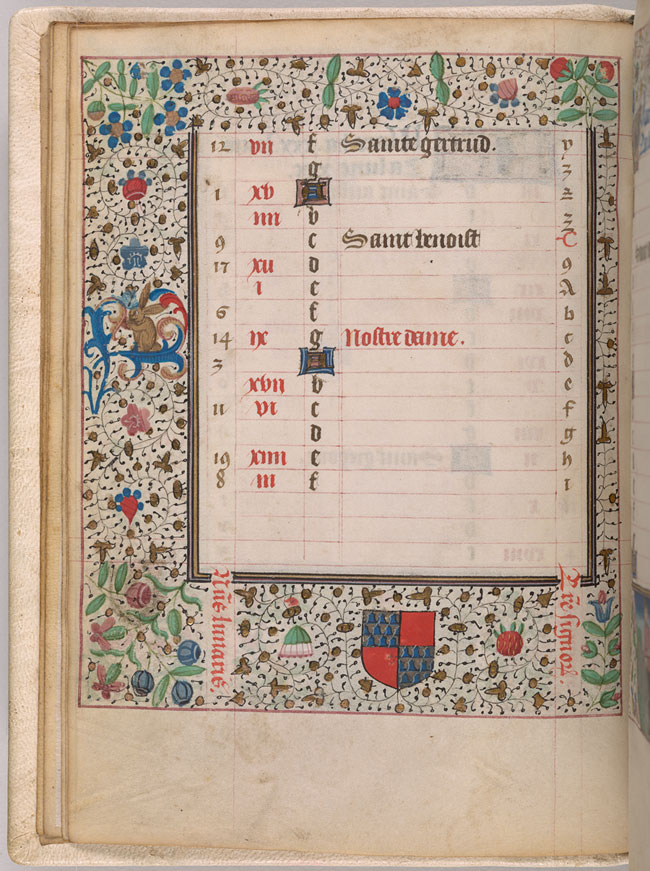 12 vii f Sainte gertrud. y
g z
1 xv A 2
iiii b 3
9 c Saint benoist C
17 xii d 9
i e A
6 f b
14 ix g Nostre dame. c
3 A d
xvii b e
11 vi c f
d g
19 xiiii e h
8 iii f i
Nus lunaris.
signor.